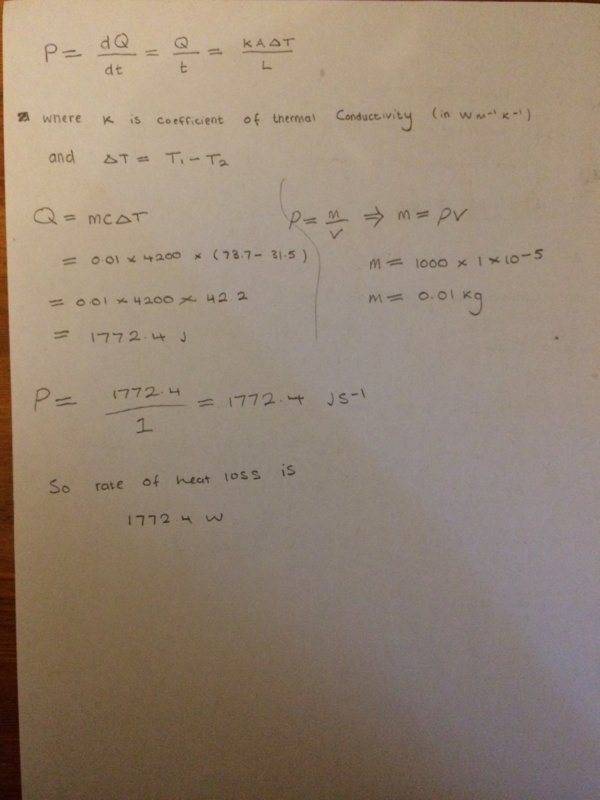 P = dQ/dt = Q/t = KAΔT/L
where K is coefficient of thermal Conductivity (in Wm⁻¹K⁻¹)
and ΔT = T₁ - T₂
Q = mCΔT
= 0.01 × 4200 × (73.7 - 31.5)
= 0.01 × 4200 × 42.2
= 1772.4 J
ρ = m/V ⇒ m = ρV
m = 1000 × 1 × 10⁻⁵
m = 0.01 kg
P = 1772.4/1 = 1772.4 Js⁻¹
So rate of heat loss is
1772.4 W